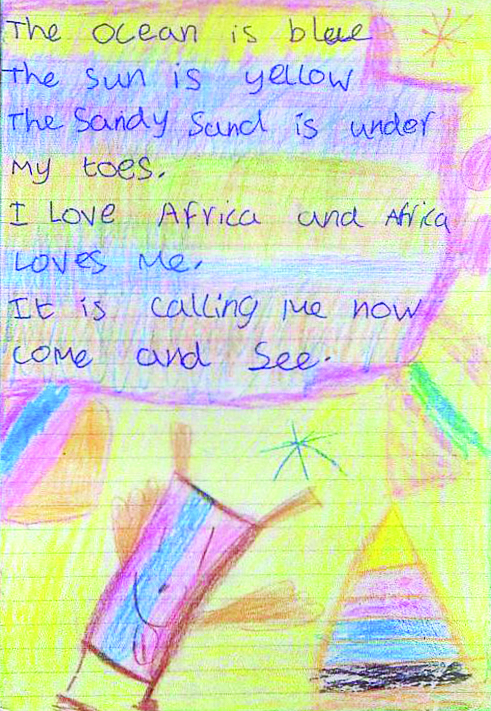 The ocean is blue
The sun is yellow
The Sandy Sand is under
My toes.
I Love Africa and Africa
Loves Me.
It is calling me now
come and See.